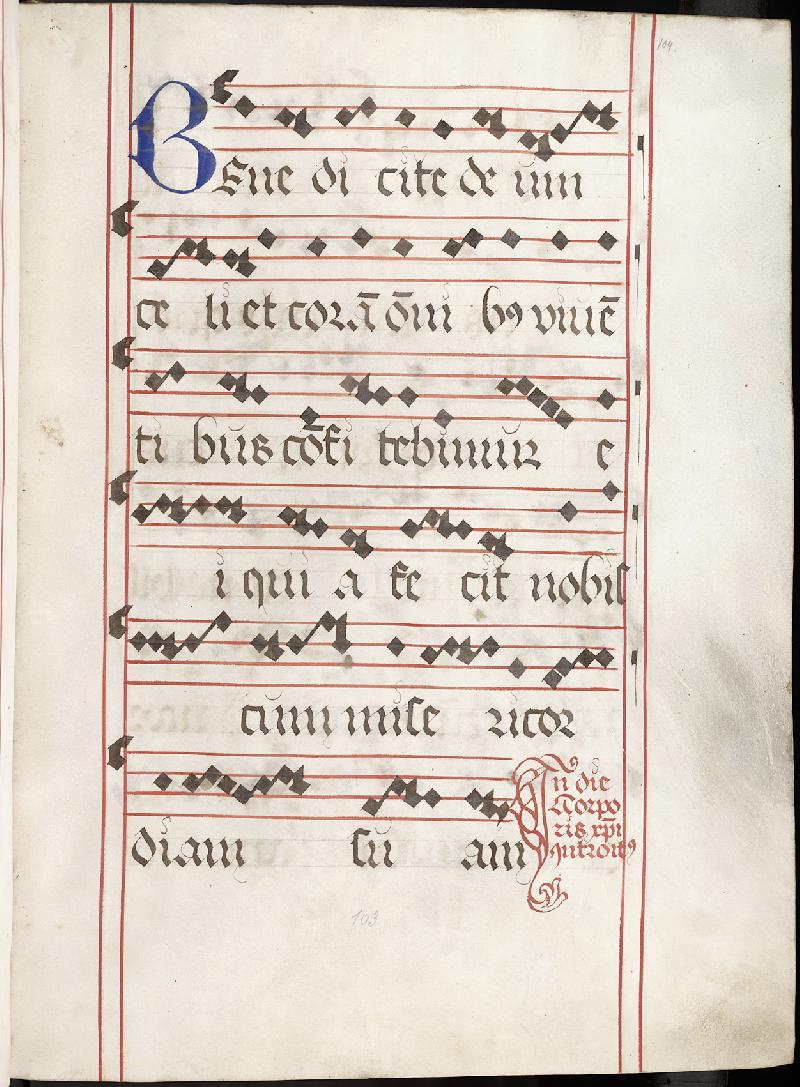 104.
BEne di cite de um
ce li et corā ōm̄i bꝰ viuē
ti bus cōfi tebimur e
i qui a fe cit nobis
cum mise ricor
diam su am
In die
Corpo
ris xp̄i
Introitꝰ
103